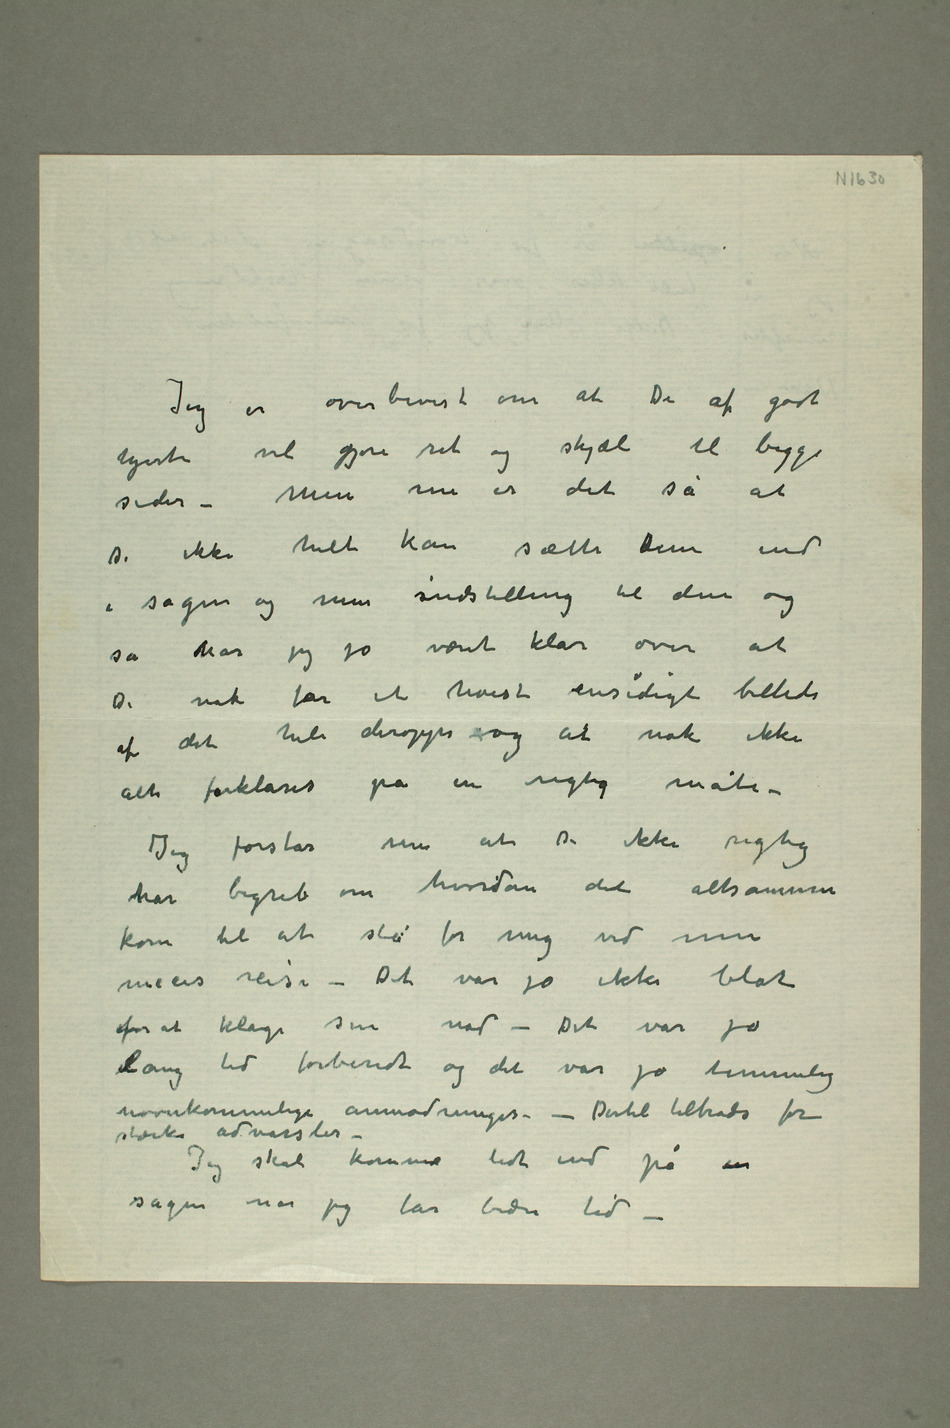 N1630
Jeg er overbevist om at De af godt
hjerte vil gjøre ret og skjæl til begge
sider – Men nu er det så at
De ikke helt kan sætte Dem ind
i sagen og min indstilling til den og
så har jeg jo været klar over at
De nok får et høist ensidigt billede
af det hele deroppe og at nok ikke
alt forklares på en rigtig måte –
Jeg forstår nu at De ikke rigtig
har begreb om hvordan det altsammen
kom til at stå for mig ved min
nieces reise – Det var jo ikke blot
for at klage sin nød – Det var jo
lang tid forberedt og det var jo temmelig
nærkommelige anmodninger – Dertil tiltrods for
stærke advarsler –
Jeg skal komme lidt ind på
sagen når jeg får bedre tid –